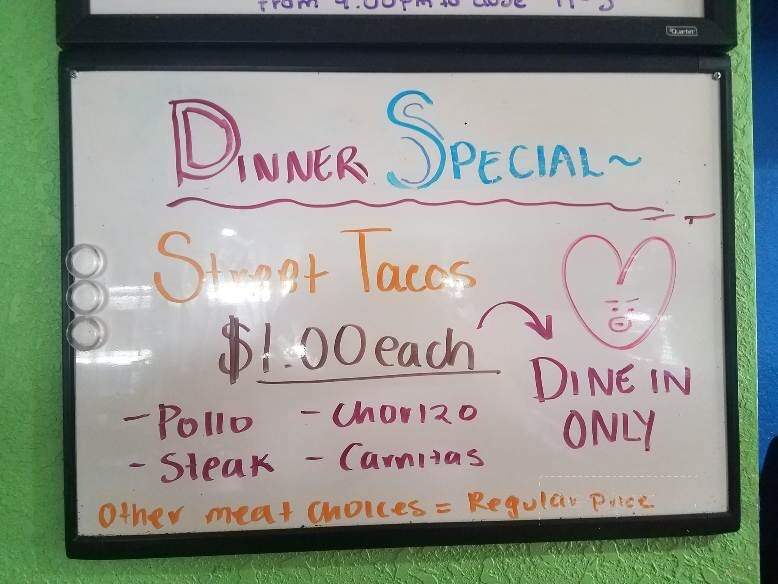 From 4:00pm to close
Quartet
DINNER SPECIAL~
Street Tacos
$1.00 each
DINE IN
ONLY
- Pollo - Chorizo
- Steak - Carnitas
Other meat choices = Regular Price